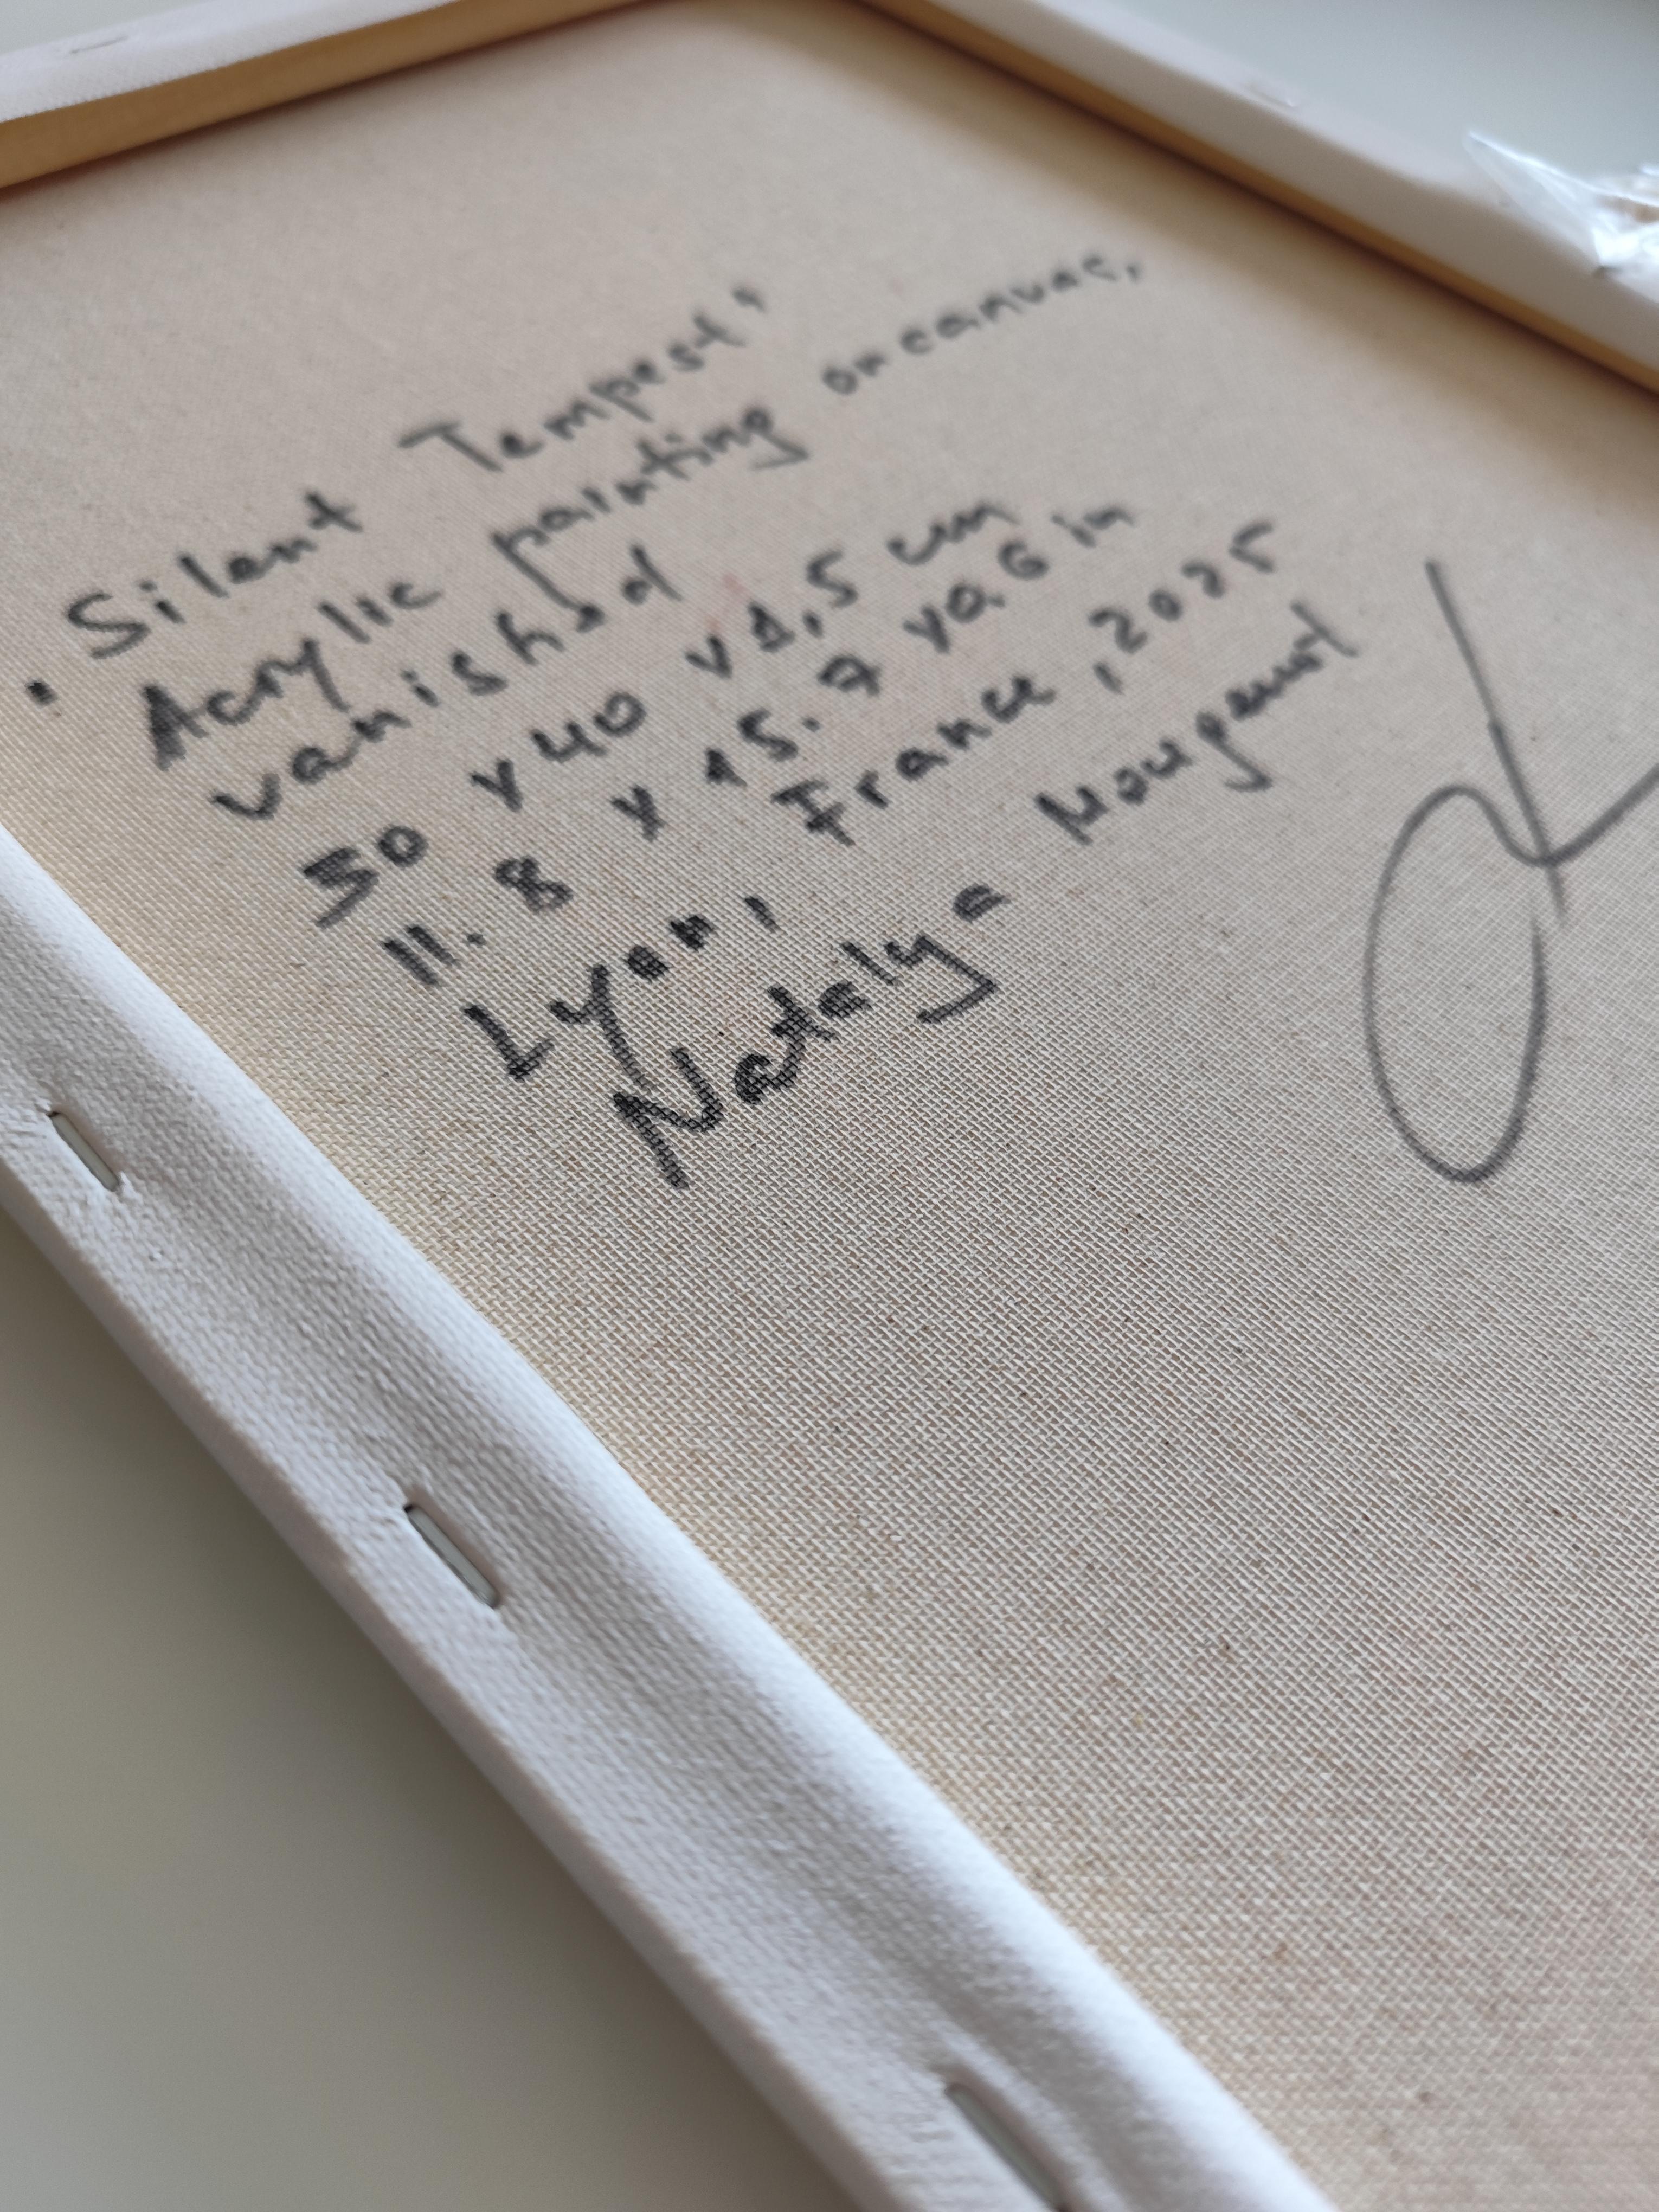 "Silent Tempest"
Acrylic painting on canvas,
vanished
30 x 40 x 1,5 cm
11.8 x 15.7 x 0.6 in
Lyon, France, 2025
Natalya Mougenot